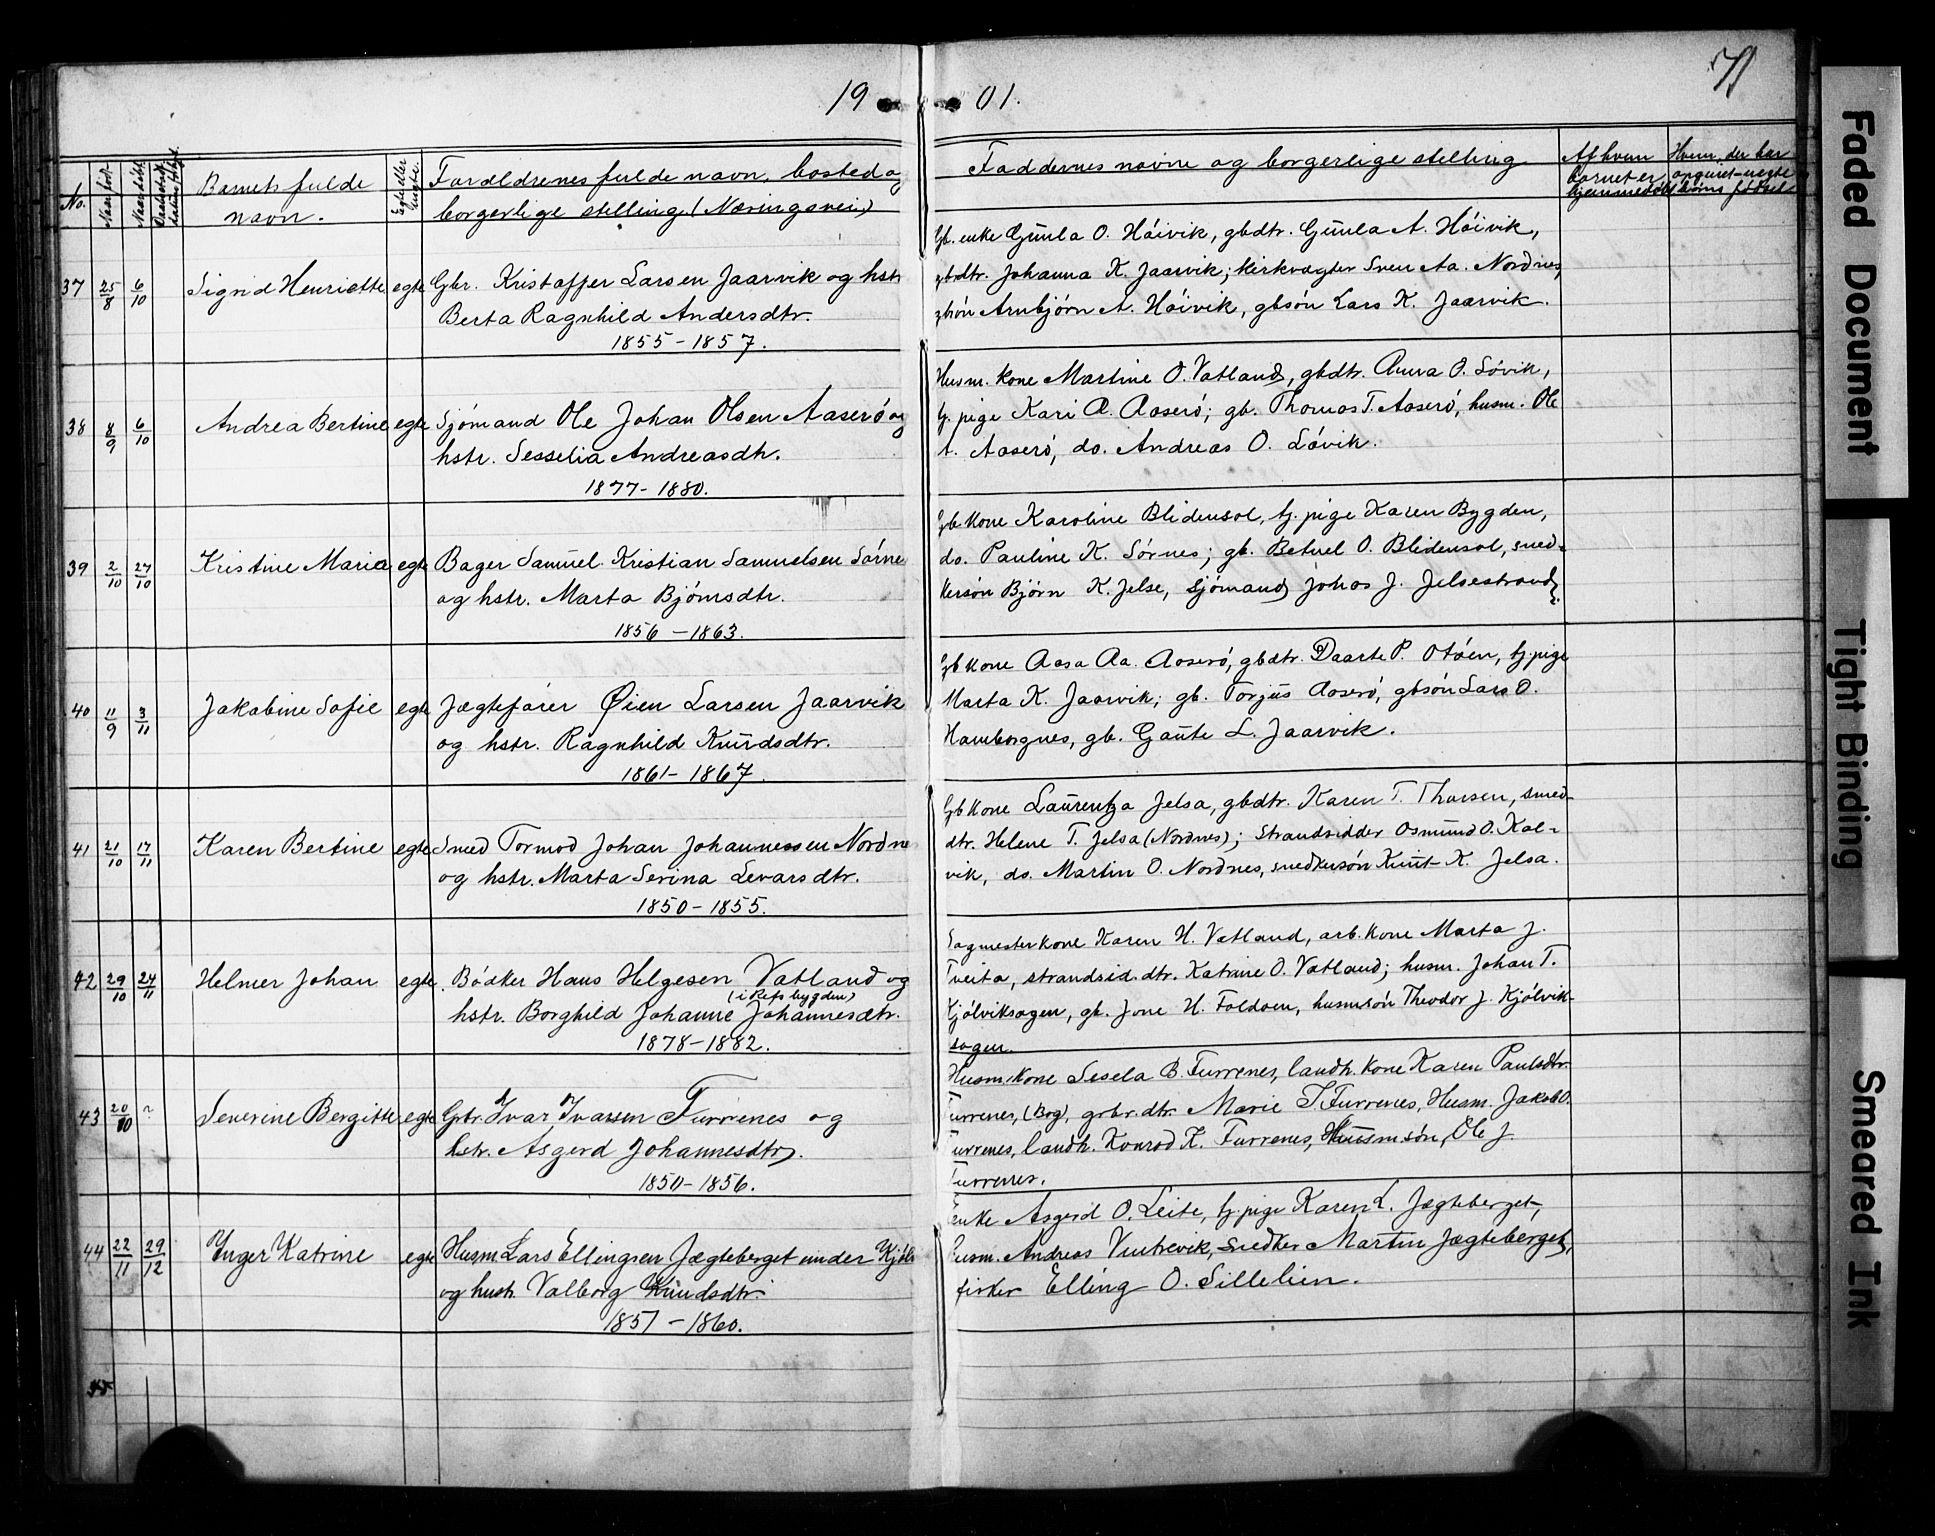 19 01.
71
No. Barnets fulde navn. Egte eller uegte. Forældrenes fulde navn, bosted og borgerlige stelling (Næringsvei.) Faddernes navne og borgerlige stilling Af hvem barnet er hjemmedøbt Hvem der har
37 25/8 6/10 Sigrid Henriette egte Gbr. Kristoffer Larsen Jaarvik og hstr
Berta Ragnhild Andersdtr.
1855-1857.
Gb. enke Gunla O. Høivik, gbdtr. Gunla A. Høivik,
gbdtr. Johanna K. Jaarvik; kirkvægter Sven Aa. Nordnes,
gbsøn Arnbjørn A. Høivik, gbsøn Lars K. Jaarvik.
38 8/9 6/10 Andrea Bertine egte Sjømand Ole Johan Olsen Aaserø og
hstr. Sesselia Andreasdtr.
1877-1880.
Husm. kone Martine O. Vatland, gbdtr. Anna O. Løvik,
tj. pige Kari A. Aaserø; gb. Thomas T. Aaserø, husm. Ole
A. Aaserø, do. Andreas O. Løvik.
39 2/10 27/10 Kristine Maria egte Bager Samuel Kristian Samuelsen Sørnes
og hstr. Marta Bjørnsdtr.
1856-1863.
Gbkone Karoline Blidensol, tj. pige Karen Bygden,
do. Pauline K. Sørnes; gb. Betuel O. Blidensol, sned-
kersøn Bjørn K. Jelse, sjømand Johas J. Jelsestrand.
40 11/9 3/11 Jakobine Sofie egte Jægtefører Øien Larsen Jaarvik
og hstr. Ragnhild Knudsdtr.
1861-1867.
Gbkone Aasa Aa. Aaserø, gbdtr. Daarte P. Otøen, tj. pige
Marta K. Jaarvik; gb. Torjus Aaserø, gbsøn Lars O.
Hamborgnes, gb. Gaute L. Jaarvik.
41 21/10 17/11 Karen Bertine egte Smed Tormod Johan Johannessen Nordnes
og hstr. Marta Serina Levarsdtr.
1850-1855.
Gbkone Laurentza Jelsa, gbdtr. Karen T. Thorsen, smed-
dtr. Helene T. Jelsa (Nordnes); strandsidder Osmund O. Kal-
vik, do. Martin O. Nordnes, snedkersøn Knut K. Jelsa.
42 29/10 24/11 Helmer Johan egte Bødker Hans Helgesen Vatland og
(i Refsbygden)
hstr. Borghild Johanne Johannesdtr.
1878-1882.
Sagmesterkone Karen H. Vatland, arb. kone Marta J.
Tveita, strandsid. dtr. Katrine O. Vatland; husm. Johan T.
Kjølviksagen, gb. Jone H. Foldøen, husmsøn Theodor J. Kjølvik-
sagen.
43 20/10 ? Severine Bergitte egte Grbr. Ivar Ivarsen Furrenes og
hstr. Asgerd Johannesdtr.
1850-1856.
Husmkone Sesela B. Furrenes, landh. kone Karen Paulsdtr.
Furrenes, (Brg), grbr. dtr. Marie I. Furrenes, Husm. Jakob O.
Furrenes, landh. Konrad K. Furrenes, Husmsøn, Ole J.
Furrenes.
44 22/11 29/12 Inger Katrine egte Husm. Lars Ellingsen Jægteberget under Kjølv
og hustr. Valborg Knudsdtr.
1857-1860.
Enke Asgerd O. Leite, tj. pige Karen L. Jægteberget,
Husm. Andreas Vintrevik, snedker Martin Jægteberget,
fisker Elling O. Sillelien.
45
Faded Document
Tight Binding
Smeared Ink